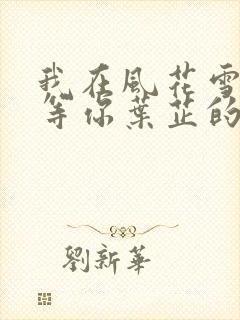 我在風花雪
等你葉芷的
劉新華